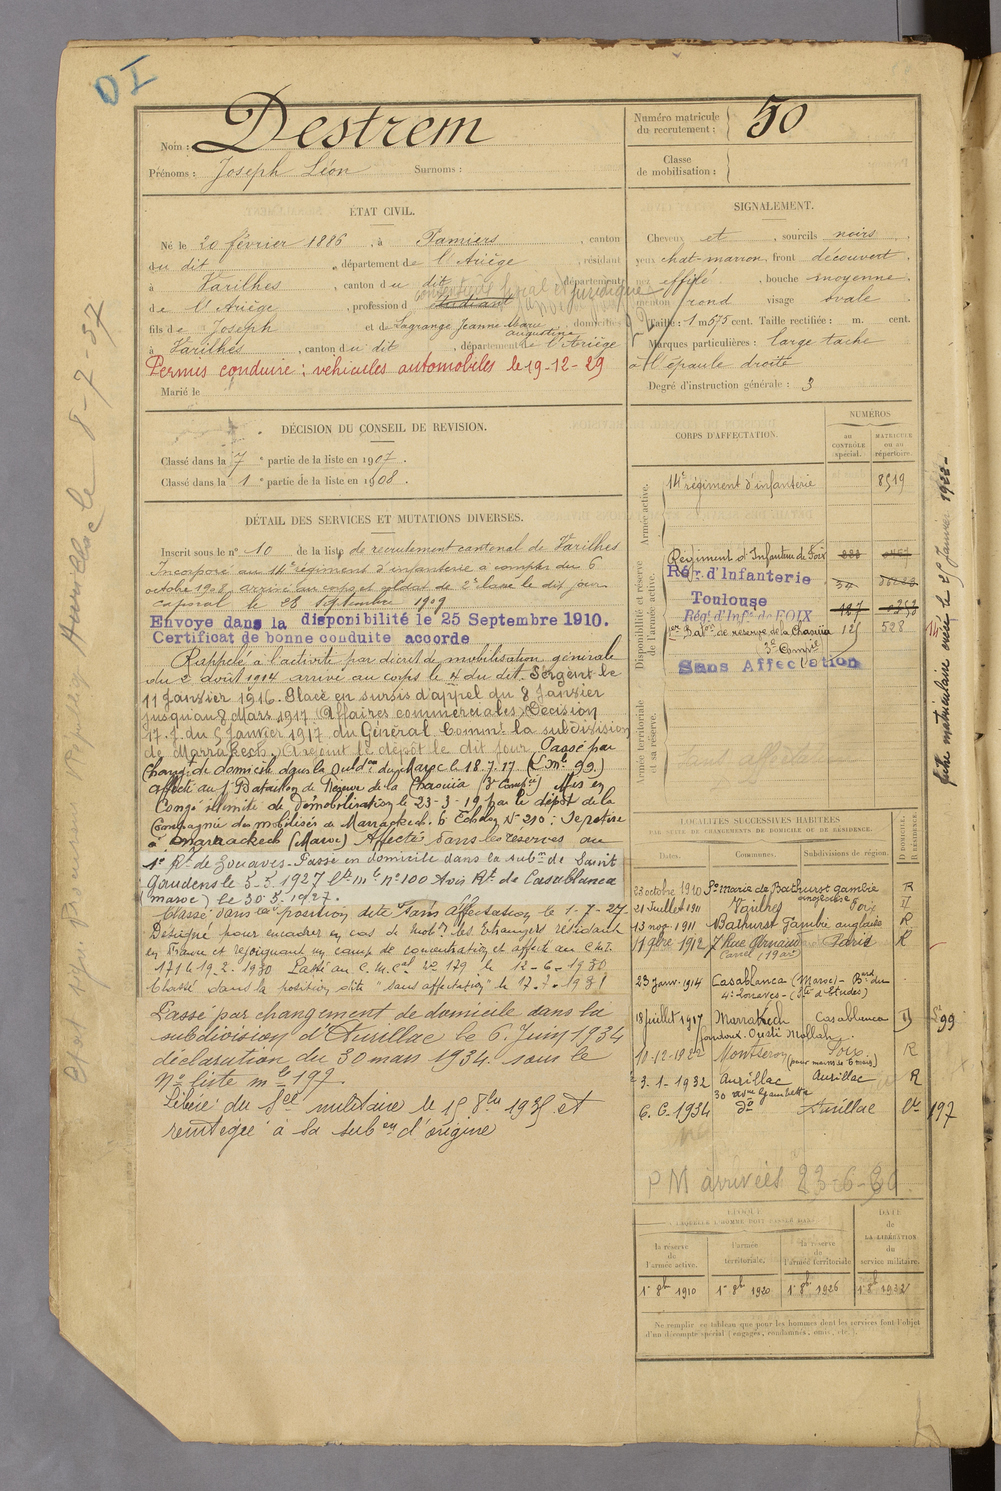 DI
Nom : Destrem
Prénoms : Joseph Léon Surnoms :
Numéro matricule du recrutement : 50
Classe de mobilisation :
ÉTAT CIVIL.
Né le 20 février 1886, à Pamiers, canton
du dit, département de l'Ariège, résidant
à Varilhes, canton du dit, département
de l'Ariège, profession d étudiant
fils de Joseph et de Lagrange Jeanne Marie Augustine domiciliés
à Varilhes, canton du dit, département de l'Ariège
Permis conduire : véhicules automobiles le 19-12-29
Marié le
SIGNALEMENT.
Cheveux et, sourcils noirs,
yeux chat-marron, front découvert,
nez effilé, bouche moyenne,
menton rond visage ovale.
Taille : 1 m 575 cent. Taille rectifiée : m. cent.
Marques particulières : large tache
à l'épaule droite
Degré d'instruction générale : 3
DÉCISION DU CONSEIL DE REVISION.
Classé dans la 7e partie de la liste en 1907.
Classé dans la 1e partie de la liste en 1908.
DÉTAIL DES SERVICES ET MUTATIONS DIVERSES.
Inscrit sous le n° 10 de la liste de recrutement cantonal de Varilhes
Incorporé au 14e régiment d'infanterie à compter du 6
octobre 1908, arrivé au corps et soldat de 2e classe le dit jour
Caporal le 28 septembre 1909
Envoye dans la disponibilité le 25 Septembre 1910.
Certificat de bonne conduite accorde
Rappelé à l'activité par décret de mobilisation générale
du 2 août 1914 arrivé au corps le 4 du dit. Sergent le
11 Janvier 1916. Placé en sursis d'appel du 8 Janvier
jusqu'au 8 Mars 1917 (Affaires commerciales) Décision
17. J. du 5 Janvier 1917 du Général Commt la subdivision
de Marrakech. le dépôt le dit jour. Passé par
Changt de domicile dans la subdon du Maroc le 18.7.17 (L. mle 99.)
affecté au 1r Bataillon de Réserve de la Chaouia (3e Compie) Mis en
Congé illimité de démobilisation le 23-3-19 par le dépôt de la
Compagnie des mobilisés de Marrackech. 6 Echelon N° 210 : Se retire
à Marrackech (Maroc) Affecté dans les réserves au
1er Rt de Zouaves - Passé en domicile dans la subn de Saint
Gaudens le 5.5.1927 Lte mle n° 100 Avis Rt de Casablanca
(Maroc) le 30.5.1927.
Classé dans la position dite Sans affectation le 1-7-27
Désigné pour encadrer en cas de mobn les étrangers résidant
en France et rejoignant un camp de concentration et affecté au C.M.I.
1716 19.2.1930 Passé au C.M.Cal 22 179 le 12-6-1930
Classé dans la position dite "sans affectation" le 17.7.1931
Passé par changement de domicile dans la
subdivision d'Aurillac le 6. Juin 1934
déclaration du 30 mars 1934. sous le
N° liste mle 197.
Libéré du See militaire le 15 8bre 1935 et
réintégré à la subon d'origine
CORPS D'AFFECTATION.
NUMÉROS
au CONTRÔLE spécial.
MATRICULE ou au répertoire.
Armée active.
14e régiment d'infanterie 8519
Disponibilité et réserve de l'armée active.
Régiment d'Infanterie de Foix
Rég. d'Infanterie
Toulouse
Rég. d'Infie de FOIX
1er Baton de réserve de la Chaouia 125 528
(3e Compie)
Sans Affectation
Armée territoriale et sa réserve.
LOCALITÉS SUCCESSIVES HABITÉES
PAR SUITE DE CHANGEMENTS DE DOMICILE OU DE RÉSIDENCE.
Dates. Communes. Subdivisions de région. D DOMICILE. R RÉSIDENCE.
23 octobre 1910 Ste marie de Bathurst gambie anglaise R
21 Juillet 1911 Varilhes Foix
13 nov. 1911 Bathurst Gambie anglaise R
1912 7 Rue Paris R
23 janv. 1914 Casablanca (Maroc) - Bard du
4e Zouaves - (Sté d'Etudes)
18 juillet 1917 Marrakech Casablanca D 99
10-12-1922 Montseron Foix (pour moins de 6 mois) R
3-1-1932 Aurillac Aurillac R
30 avue Gambetta
6.6.1934 d° Aurillac 197
P M arrivées 23-6-36
ÉPOQUE
À LAQUELLE L'HOMME DOIT PASSER DANS :
la réserve de l'armée active.
l'armée territoriale.
la réserve de l'armée territoriale
DATE de LA LIBÉRATION du service militaire.
1er 8bre 1910 1er 8bre 1920 1er 8bre 1926 1er 8bre 1932
Ne remplir ce tableau que pour les hommes dont les services font l'objet
d'un décompte spécial (engagés, condamnés, omis, etc.).
fiche matriculaire envoyée le 25 Janvier 1922-
Aurillac le 8-7-37